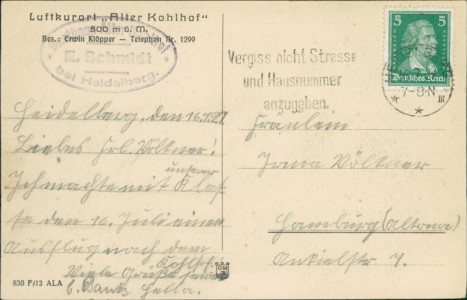 Luftkurort "Alter Kohlhof"
500 m ü. M.
Bes.: Erwin Klöpper — Telephon Nr. 1299
E. Schmidt
bei Heidelberg.
Vergiss nicht Strasse
und Hausnummer
anzugeben.
5 5
Deutsches Reich
7-8·N
III
Heidelberg, den 16.7.27
Liebes Frl. Völtner!
Ich machte mit unserer Klas-
se den 16. Juli einen
Ausflug nach dem
Kohlhof.
Viele Grüße
Hella.
Fräulein
Irma Völtner
Hamburg (Altona)
830 F/12 ALA